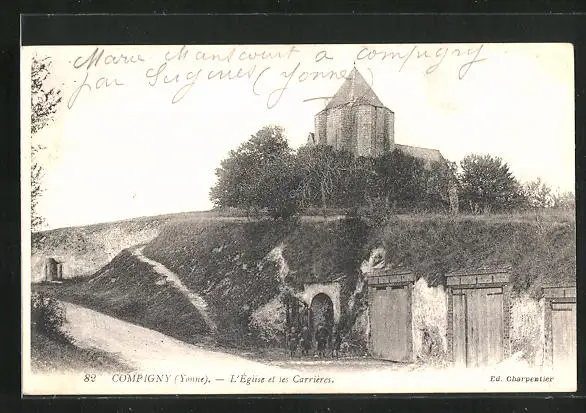 Marie Manscourt a Compigny
par Sergines (Yonne)
82 COMPIGNY (Yonne). — L'Église et les Carrières. Ed. Charpentier